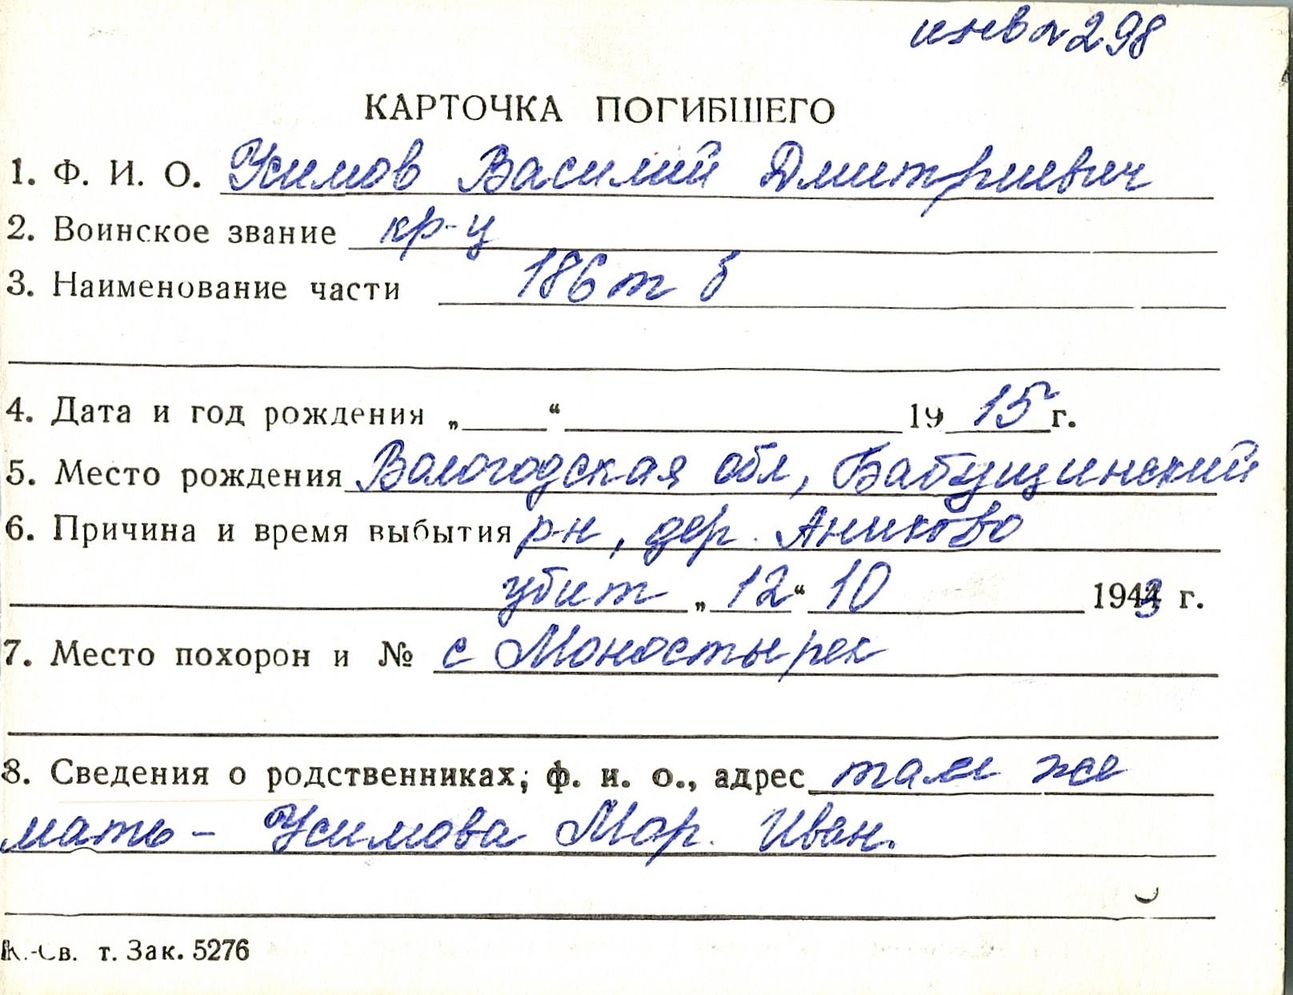 инв № 298
КАРТОЧКА ПОГИБШЕГО
1. Ф. И. О. Усимов Василий Дмитриевич
2. Воинское звание кр-ц
3. Наименование части 186 т б
4. Дата и год рождения „ “ 1915 г.
5. Место рождения Вологодская обл, Бабущинский
6. Причина и время выбытия р-н, дер. Аниково
убит „12“ 10 1943 г.
7. Место похорон и № с Моностырек
8. Сведения о родственниках, ф. и. о., адрес там же
мать - Усимова Мар. Иван.
К.-Св. т. Зак. 5276